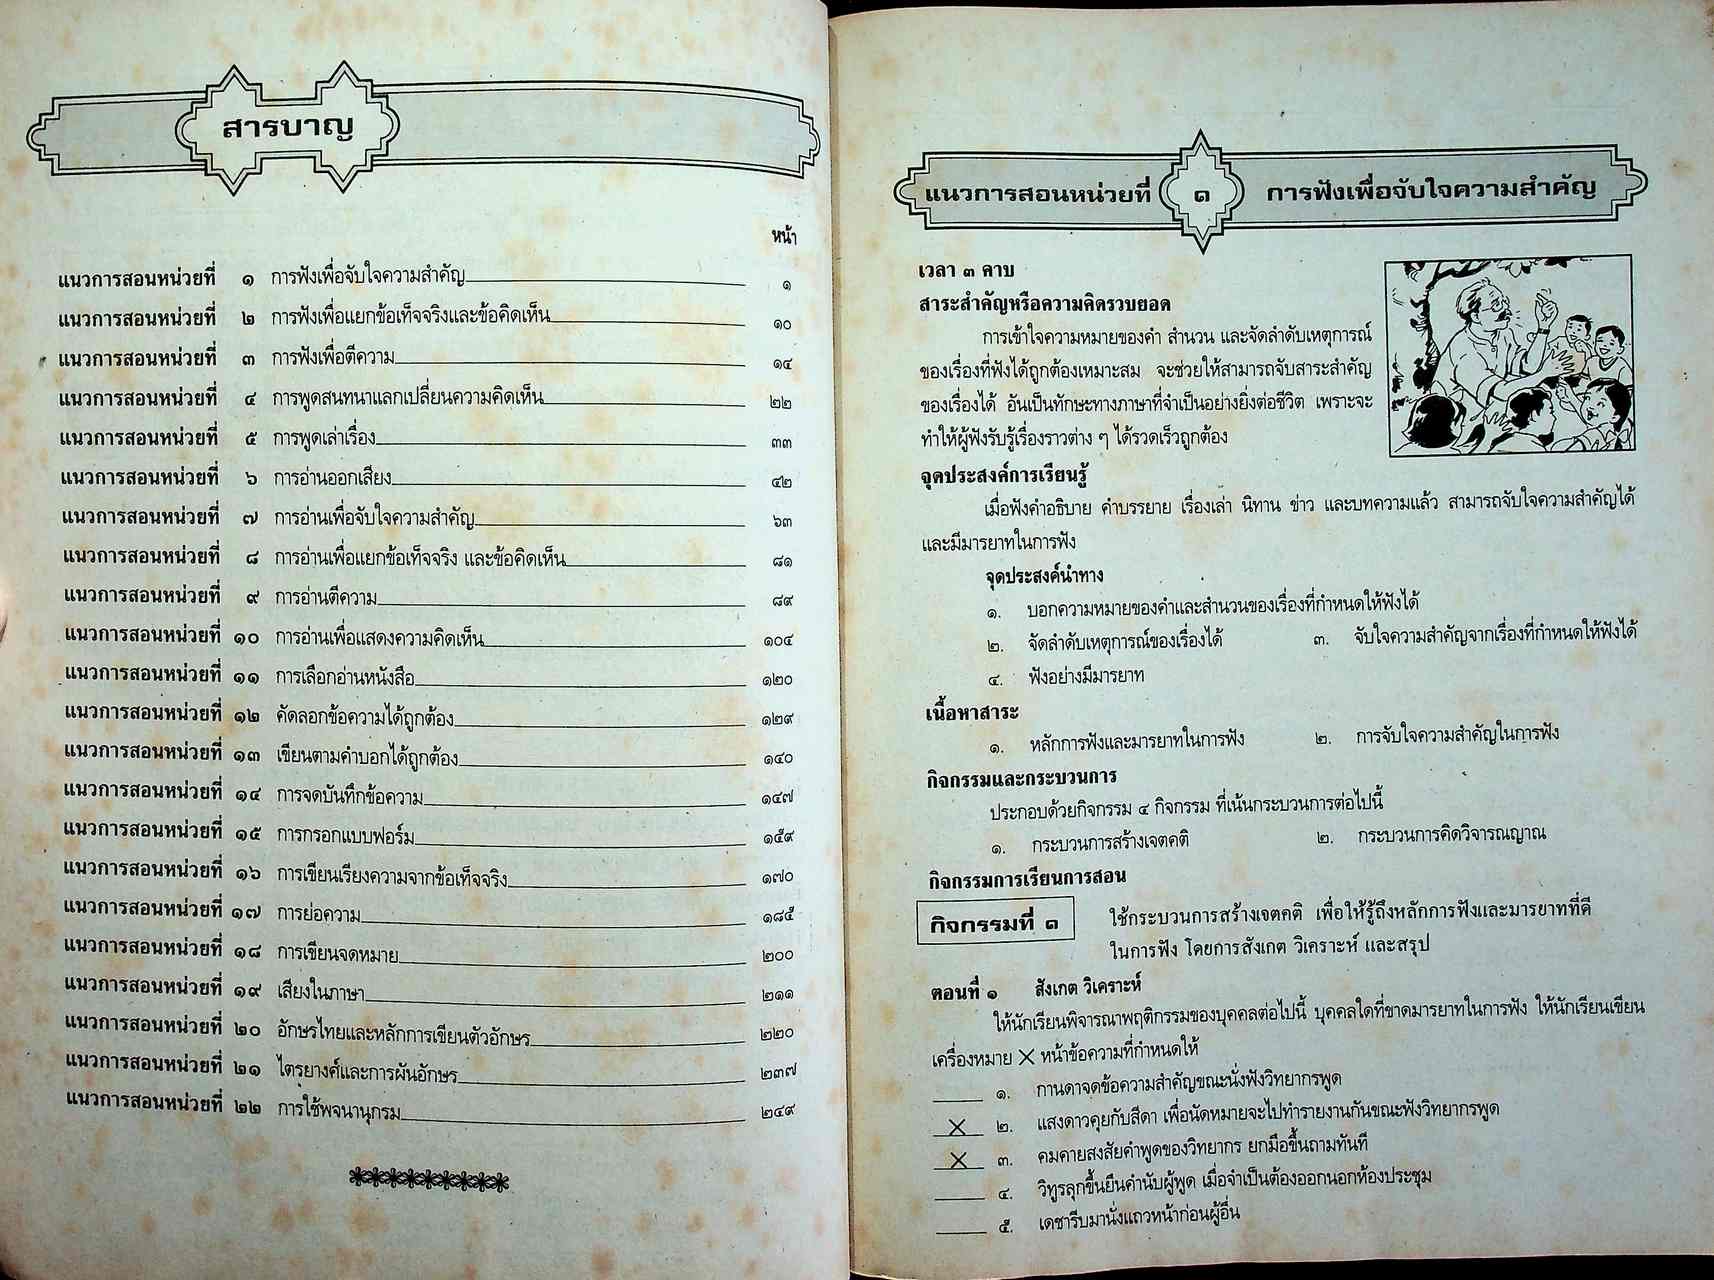 สารบาญ
หน้า
แนวการสอนหน่วยที่ ๑ การฟังเพื่อจับใจความสำคัญ ๑
แนวการสอนหน่วยที่ ๒ การฟังเพื่อแยกข้อเท็จจริงและข้อคิดเห็น ๑๐
แนวการสอนหน่วยที่ ๓ การฟังเพื่อตีความ ๑๔
แนวการสอนหน่วยที่ ๔ การพูดสนทนาแลกเปลี่ยนความคิดเห็น ๒๒
แนวการสอนหน่วยที่ ๕ การพูดเล่าเรื่อง ๓๓
แนวการสอนหน่วยที่ ๖ การอ่านออกเสียง ๔๒
แนวการสอนหน่วยที่ ๗ การอ่านเพื่อจับใจความสำคัญ ๖๓
แนวการสอนหน่วยที่ ๘ การอ่านเพื่อแยกข้อเท็จจริง และข้อคิดเห็น ๘๑
แนวการสอนหน่วยที่ ๙ การอ่านตีความ ๘๙
แนวการสอนหน่วยที่ ๑๐ การอ่านเพื่อแสดงความคิดเห็น ๑๐๔
แนวการสอนหน่วยที่ ๑๑ การเลือกอ่านหนังสือ ๑๒๐
แนวการสอนหน่วยที่ ๑๒ คัดลอกข้อความได้ถูกต้อง ๑๒๙
แนวการสอนหน่วยที่ ๑๓ เขียนตามคำบอกได้ถูกต้อง ๑๔๐
แนวการสอนหน่วยที่ ๑๔ การจดบันทึกข้อความ ๑๔๗
แนวการสอนหน่วยที่ ๑๕ การกรอกแบบฟอร์ม ๑๕๙
แนวการสอนหน่วยที่ ๑๖ การเขียนเรียงความจากข้อเท็จจริง ๑๗๐
แนวการสอนหน่วยที่ ๑๗ การย่อความ ๑๘๕
แนวการสอนหน่วยที่ ๑๘ การเขียนจดหมาย ๒๐๐
แนวการสอนหน่วยที่ ๑๙ เสียงในภาษา ๒๑๑
แนวการสอนหน่วยที่ ๒๐ อักษรไทยและหลักการเขียนตัวอักษร ๒๒๐
แนวการสอนหน่วยที่ ๒๑ ไตรยางศ์และการผันอักษร ๒๓๗
แนวการสอนหน่วยที่ ๒๒ การใช้พจนานุกรม ๒๔๙
แนวการสอนหน่วยที่ ๑ การฟังเพื่อจับใจความสำคัญ
เวลา ๓ คาบ
สาระสำคัญหรือความคิดรวบยอด
การเข้าใจความหมายของคำ สำนวน และจัดลำดับเหตุการณ์
ของเรื่องที่ฟังได้ถูกต้องเหมาะสม จะช่วยให้สามารถจับสาระสำคัญ
ของเรื่องได้ อันเป็นทักษะทางภาษาที่จำเป็นอย่างยิ่งต่อชีวิต เพราะจะ
ทำให้ผู้ฟังรับรู้เรื่องราวต่าง ๆ ได้รวดเร็วถูกต้อง
จุดประสงค์การเรียนรู้
เมื่อฟังคำอธิบาย คำบรรยาย เรื่องเล่า นิทาน ข่าว และบทความแล้ว สามารถจับใจความสำคัญได้
และมีมารยาทในการฟัง
จุดประสงค์นำทาง
๑. บอกความหมายของคำและสำนวนของเรื่องที่กำหนดให้ฟังได้
๒. จัดลำดับเหตุการณ์ของเรื่องได้ ๓. จับใจความสำคัญจากเรื่องที่กำหนดให้ฟังได้
๔. ฟังอย่างมีมารยาท
เนื้อหาสาระ
๑. หลักการฟังและมารยาทในการฟัง ๒. การจับใจความสำคัญในการฟัง
กิจกรรมและกระบวนการ
ประกอบด้วยกิจกรรม ๔ กิจกรรม ที่เน้นกระบวนการต่อไปนี้
๑. กระบวนการสร้างเจตคติ ๒. กระบวนการคิดวิจารณญาณ
กิจกรรมการเรียนการสอน
กิจกรรมที่ ๑ ใช้กระบวนการสร้างเจตคติ เพื่อให้รู้ถึงหลักการฟังและมารยาทที่ดี
ในการฟัง โดยการสังเกต วิเคราะห์ และสรุป
ตอนที่ ๑ สังเกต วิเคราะห์
ให้นักเรียนพิจารณาพฤติกรรมของบุคคลต่อไปนี้ บุคคลใดที่ขาดมารยาทในการฟัง ให้นักเรียนเขียน
เครื่องหมาย × หน้าข้อความที่กำหนดให้
____ ๑. กานดาจดข้อความสำคัญขณะนั่งฟังวิทยากรพูด
× ๒. แสงดาวคุยกับสีดา เพื่อนัดหมายจะไปทำรายงานกันขณะฟังวิทยากรพูด
× ๓. คมคายสงสัยคำพูดของวิทยากร ยกมือขึ้นถามทันที
____ ๔. วิทูรลุกขึ้นยืนคำนับผู้พูด เมื่อจำเป็นต้องออกนอกห้องประชุม
____ ๕. เดชารีบมานั่งแถวหน้าก่อนผู้อื่น